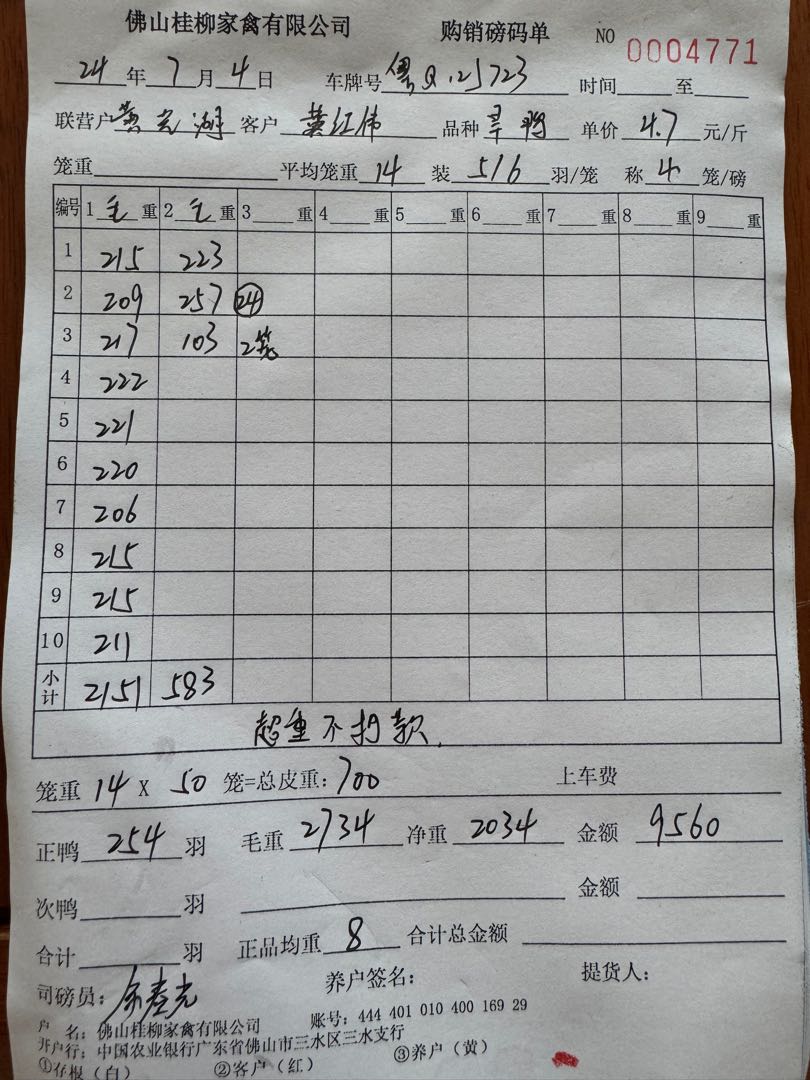 佛山桂柳家禽有限公司 购销磅码单 NO 0004771
24年7月4日 车牌号粤Q.25723 时间____至____
联营户黄光湖 客户 黄红伟 品种 单价 4.7 元/斤
笼重____平均笼重 14 装 5/6 羽/笼 称 4 笼/磅
编号 1毛重 2毛重 3____重 4____重 5____重 6____重 7____重 8____重 9____重
1 215 223
2 209 257 24
3 217 103 2笼
4 222
5 221
6 220
7 206
8 215
9 215
10 211
小计 2151 583
超重不扣款.
笼重 14 X 50 笼=总皮重: 700 上车费
正鸭 254 羽 毛重 2734 净重 2034 金额 9560
次鸭____羽 ____ 金额____
合计____羽 正品均重 8 合计总金额____
司磅员: 余春光 养户签名: 提货人:
户 名: 佛山桂柳家禽有限公司 账号: 444 401 010 400 169 29
开户行: 中国农业银行广东省佛山市三水区三水支行
①存根(白) ②客户(红) ③养户(黄)